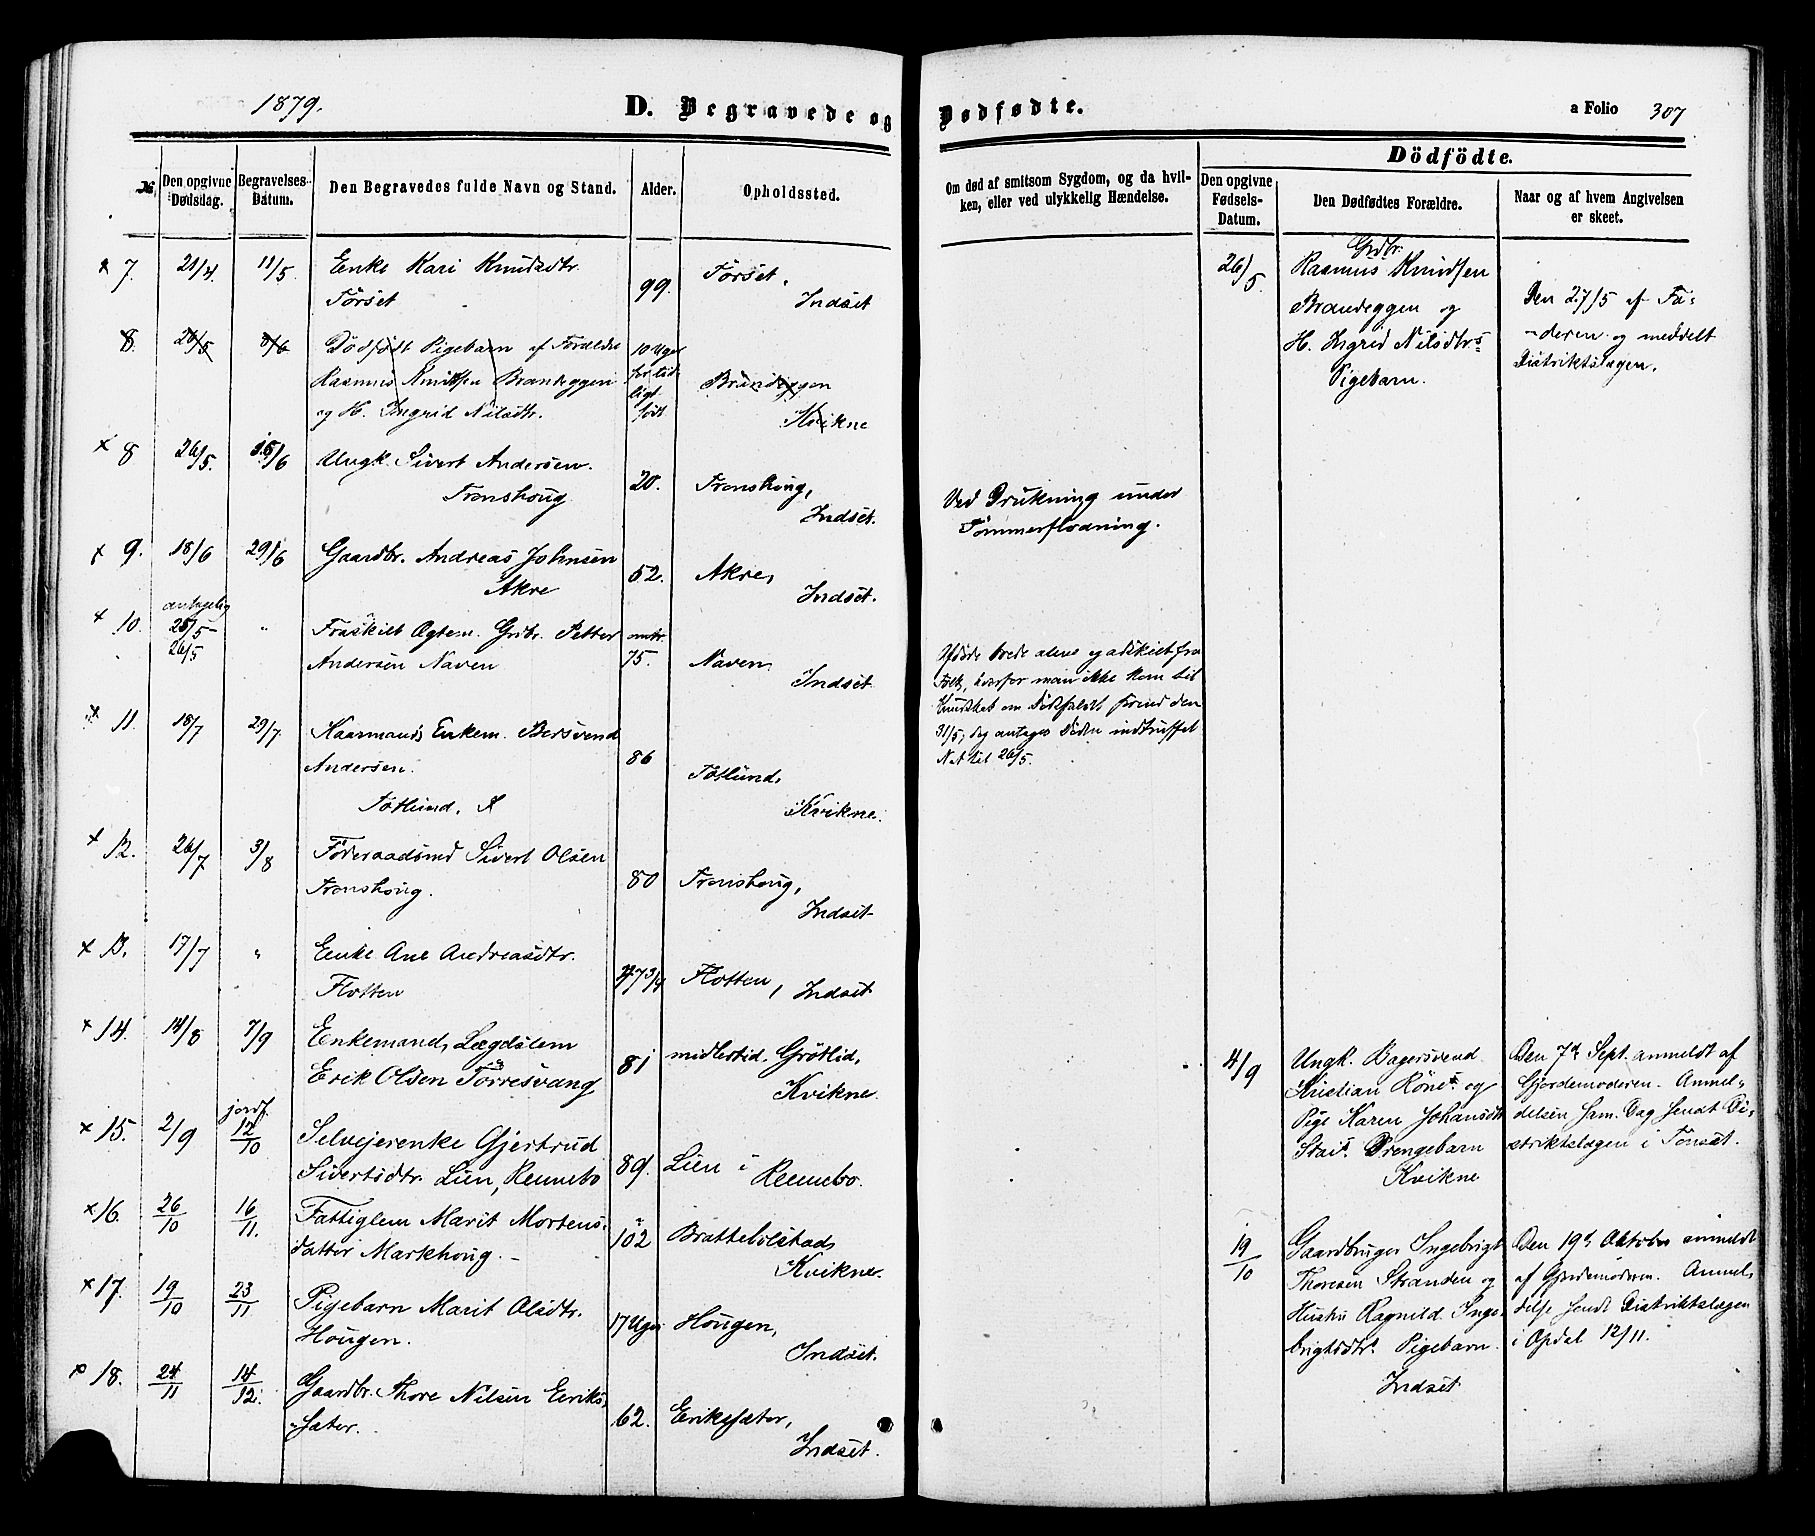 1879.
D. Begravede og Dødfødte.
a Folio 307
Dödfödte.
№
Den opgivne Dødsdag.
Begravelses-Datum.
Den Begravedes fulde Navn og Stand.
Alder.
Opholdssted.
Om død af smitsom Sygdom, og da hvil-
ken, eller ved ulykkelig Hændelse.
Den opgivne Fødsels-Datum.
Den Dødfødtes Forældre.
Naar og af hvem Angivelsen er skeet.
x 7. 21/4. 11/5 Enke Kari Knudsdtr.
Törset 99. Törset,
Indset
8. 26/5 8/6 Dödfödt Pigebarn af Foraldre
Rasmus Knudsen Brandeggen
og H. Ingrid Nilsdtr.
10 Uger
for tid-
ligt
födt
Brandeggen
Kvikne
x 8 26/5. 15/6 Ungk. Sivert Andersen.
Tronshoug 20. Tronshoug,
Indset.
x 9. 18/6 29/6 Gaardbr. Andreas Johnsen
Akre 52. Akre,
Indset.
x 10. antagelig
25/5 –
26/5
" Fraskilt Ægtem. Grdbr. Petter
Andersen Naven
omtr.
75.
Naven
Indset
x 11. 18/7 29/7. Kaarmands Enkem. Bersvend
Andersen.
Totlund. 86 Totlund,
Kvikne.
x 12. 26/7 3/8 Föderaadsmd Sivert Olsen
Tronshoug. 80 Tronshoug,
Indset
x 13. 17/7 " Enke Ane Andreasdtr.
Flotten 73/4 Flotten, Indset
x 14. 14/8 7/9 Enkemand, Lægdslem
Erik Olsen Torresvang 81 midlertid. Grötlid,
Kvikne.
x 15. 2/9 jordf.
12/10 Selvejerenke Gjertrud
Sivertsdtr. Lien, Rennebo 89. Lien i
Rennebo.
x 16. 26/10 16/11. Fattiglem Marit Mortens-
datter Markhoug. – 102 Brattebolstad
Kvikne.
x 17. 19/10 23/11 Pigebarn Marit Olsdtr.
Hougen. 17 Uger Hougen,
Indset.
x 18. 24/11 14/12. Gaardbr. Thore Nilsen Eriks-
sæter. 62. Erikssæter,
Indset.
Ved Drukning under
Tömmerflodning.
Afdöde boede alene og adskilt fra
Folk, hvorfor man ikke kom til
Kundskab om Dödsfaldet förend den
31/5, dog antages Döden indtruffet
Nat til 26/5.
26/5. Grdbr.
Rasmus Knudsen
Brandeggen og
H. Ingrid Nilsdtrs
Pigebarn.
Den 27/5 af Fa-
deren og meddelt
Distriktslægen.
4/9 Ungk. Bagersvend
Kristian Rönes og
Pige Karen Johansdtr
Stais Drengebarn
Kvikne
Den 7de Sept. anmeldt af
Gjordemoderen. Anmel-
delsen s.m. Dag sendt Di-
striktslægen i Tönset.
19/10 Gaardbruger Ingebrigt
Thoresen Stranden og
Hustru Ragnild Inge-
brigtsdtr. Pigebarn.
Indset
Den 19de Oktober anmeldt
af Gjordemoderen. Anmel-
delse sendt Distriktslægen
i Opdal 12/11.